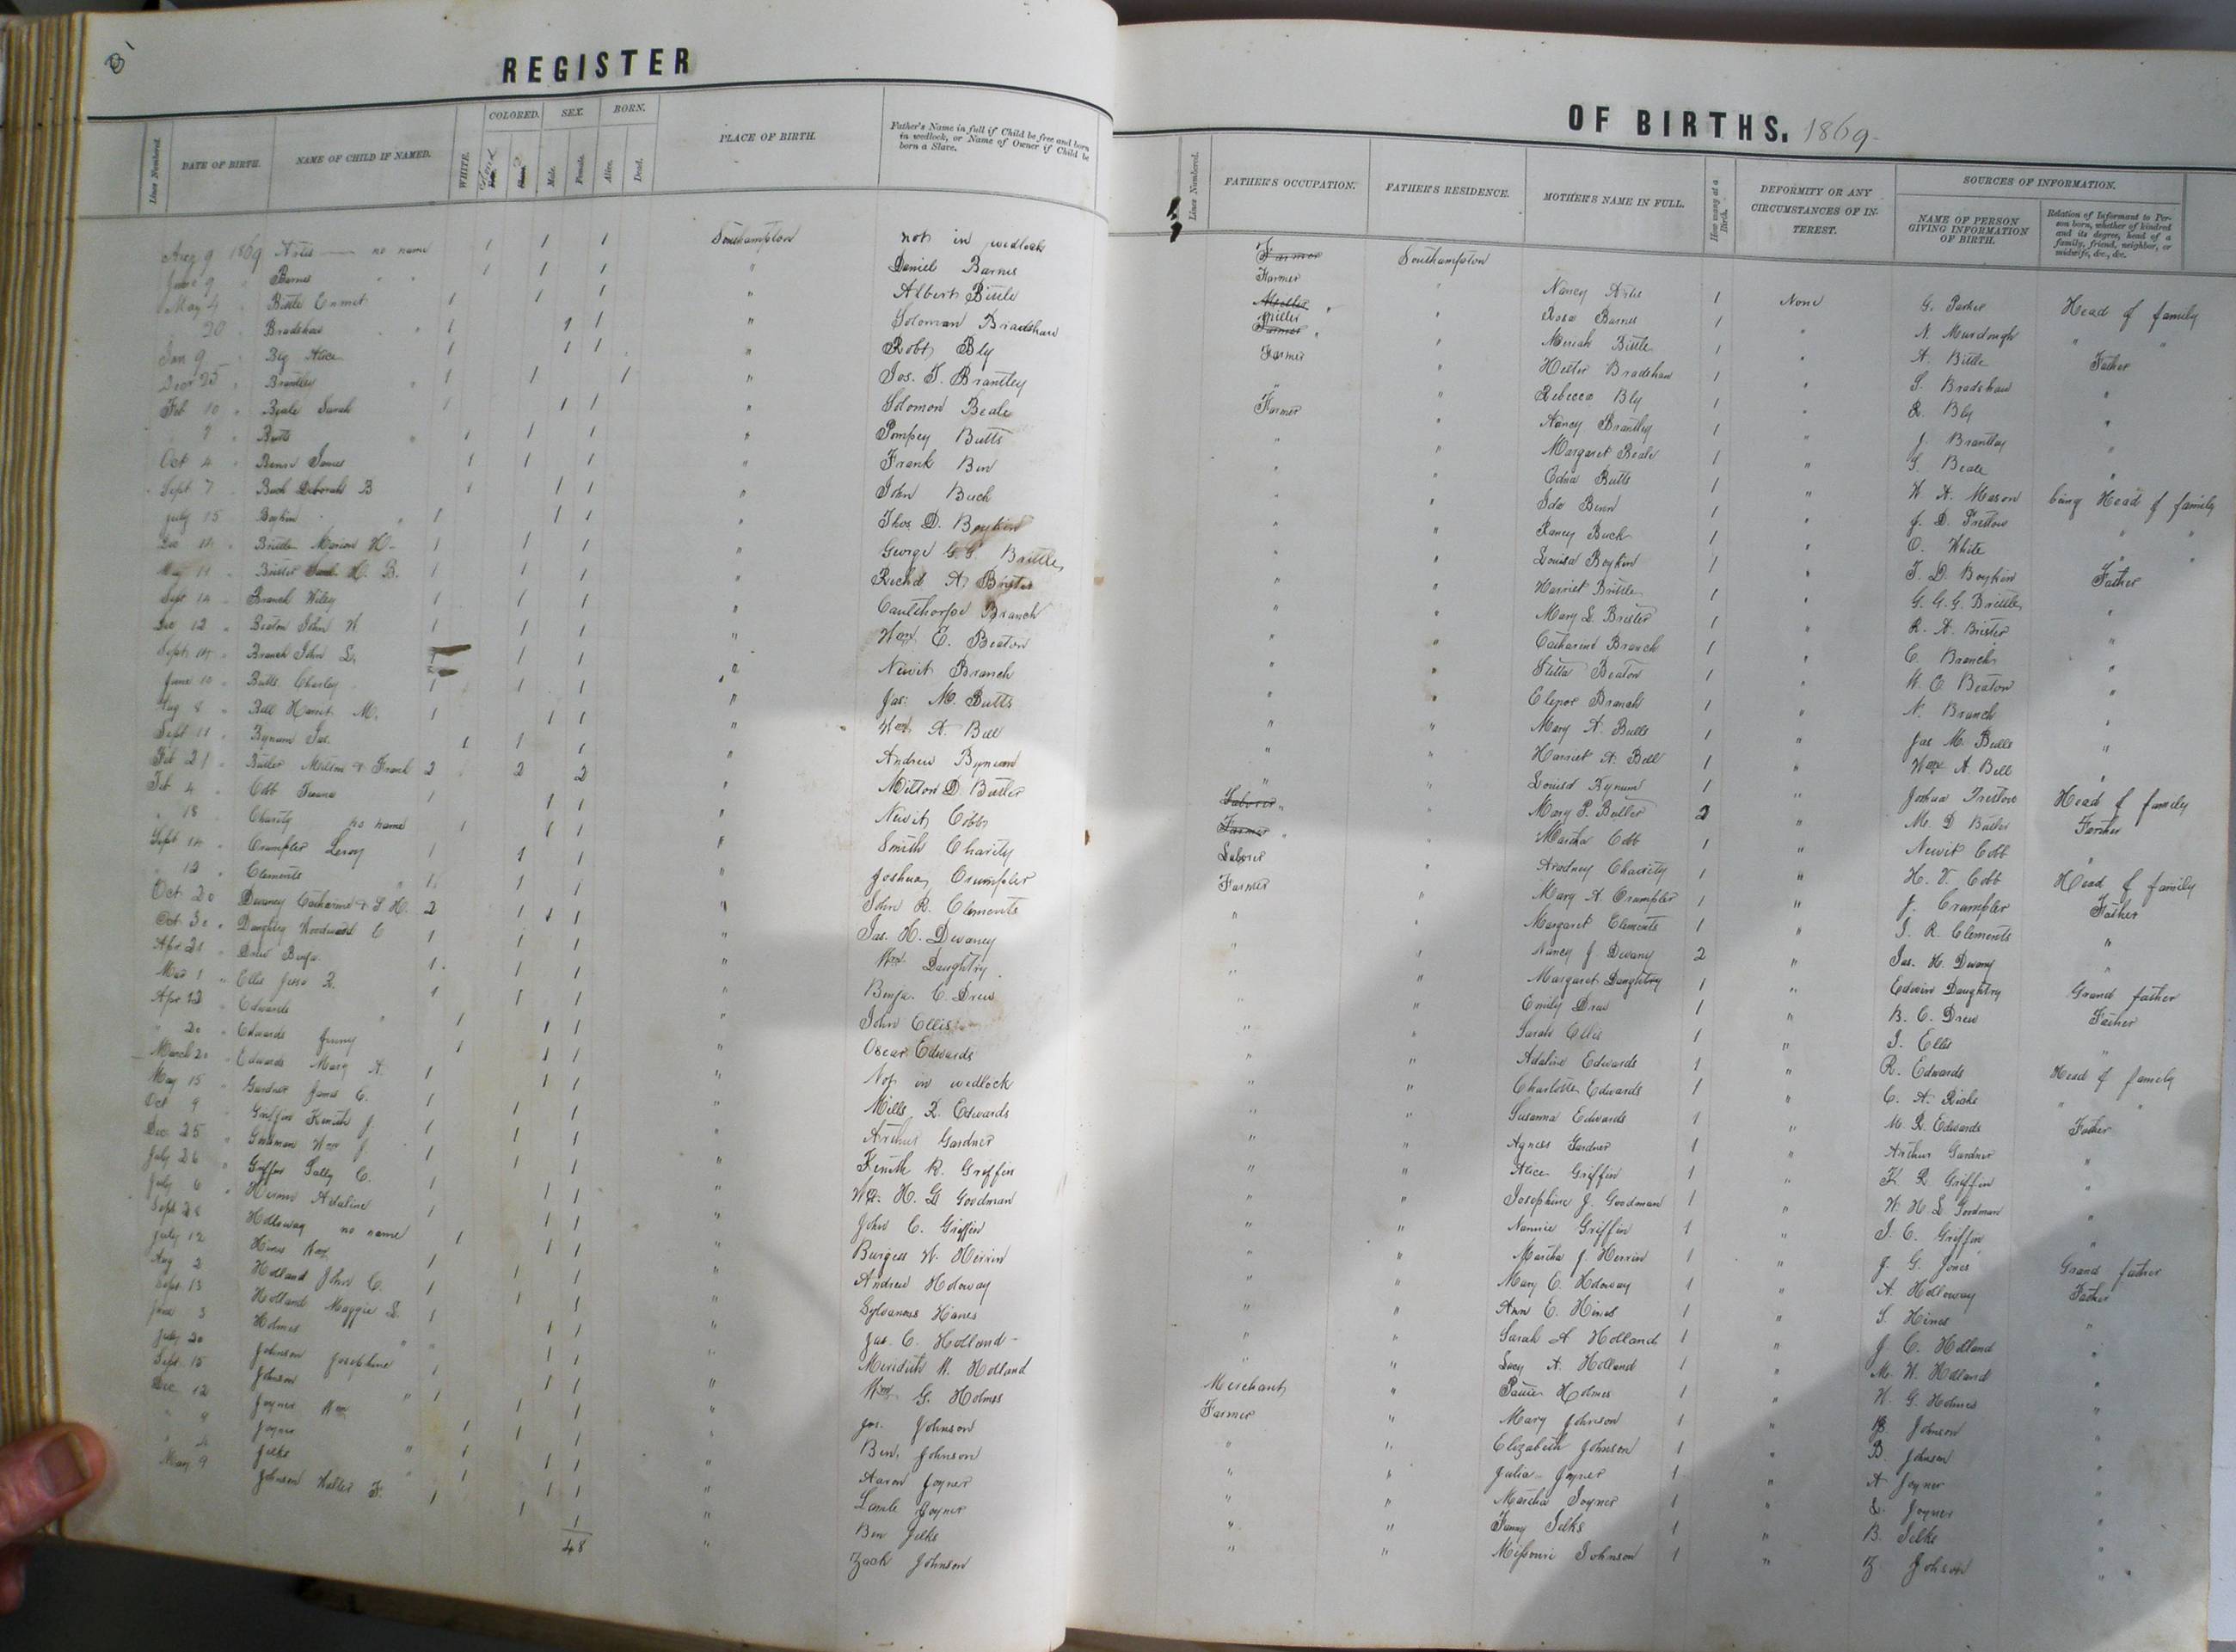 81
REGISTER
COLORED. SEX. BORN.
Lines Numbered. DATE OF BIRTH. NAME OF CHILD IF NAMED. WHITE. Male. Female. Alive. Dead. PLACE OF BIRTH. Father's Name in full if Child be free and born in wedlock, or Name of Owner if Child be born a Slave.
Aug 9 1869 Artis no name 1 1 1 Southampton not in wedlock
June 9 " Barnes " " 1 1 1 " Daniel Barnes
May 4 Bittle Emmet 1 1 1 " Albert Bittle
" 20 " Bradshaw " 1 1 1 " Soloman Bradshaw
Jan 9 Bly Alice 1 1 1 " Robt Bly
Decr 25 " Brantley " 1 1 1 " Jos. T. Brantley
Feb 10 " Beale Sarah 1 1 1 " Solomon Beale
" 7 " Butts " 1 1 1 " Pompey Butts
Oct 4 " James 1 1 1 " Frank Ben
Sept 7 " Buck Deborah B 1 1 1 " John Buck
July 15 Boykin " 1 1 1 " Thos D. Boykin
Dec 14 " Brittle Marion H. 1 1 1 " George G. G. Brittle
May 11 " Brister H. B. 1 1 1 " Richd A. Brister
Sept 14 " Branch Wiley 1 1 1 " Caulthorpe Branch
Dec 12 " Beaton John W 1 1 1 " Wm E. Beaton
Sept " Branch John L. 1 1 1 " Newit Branch
June 10 " Butts Charley 1 1 1 " Jas. M. Butts
Aug 8 " Bell Harriet M. 1 1 1 " Wm A. Bell
Sept 11 " Bynum Jas. 1 1 1 " Andrew Bynum
Feb 21 " Butler Milton & Frank 2 2 2 " Milton D. Butler
Feb 4 " Cobb 1 1 1 " Newit Cobb
" 18 Charity no name 1 1 1 " Smith Charity
Sept 14 " Crumpler Leroy 1 1 1 " Joshua Crumpler
" 12 " Clements " 1 1 1 " John R. Clements
Oct 20 Devaney Catharine & S H. 2 1 1 " Jas. H. Devaney
Oct 30 " Daughtry Woodward C 1 1 1 " Wm Daughtry
Apr 21 " Drew Benja. 1 1 1 " Benja. C. Drew
Mar 1 " Ellis Jesse R. 1 1 1 " John Ellis
Apr 12 " Edwards " 1 1 1 " Oscar Edwards
" 20 " Edwards Jenny 1 1 1 " Not in wedlock
March 20 " Edwards Mary A. 1 1 1 " Mills R. Edwards
May 15 " Gardner James E. 1 1 1 " Arthur Gardner
Oct 9 " Griffin Kenith J. 1 1 1 " Kenith R. Griffin
Dec 25 " Goodman Wm J. 1 1 1 " Wm. H. G Goodman
July 26 " Griffin Sally C. 1 1 1 " John C. Griffin
July 6 " Herrin Adaline 1 1 1 " Burgess W. Herrin
Sept 28 Holloway no name 1 1 1 " Andrew Holoway
July 12 Hines Wm 1 1 1 " Sylvanous Hines
Aug 2 Holland John C. 1 1 1 " Jas. C. Holland
Sept 13 Holland Maggie L. 1 1 1 " Meridith W. Holland
June 3 Holmes " 1 1 1 " Wm G. Holmes
July 20 Johnson Josephine 1 1 1 " Jos. Johnson
Sept 15 Johnson " 1 1 1 " Ben. Johnson
Dec 12 Joyner Wm 1 1 1 " Aaron Joyner
" 9 Joyner " 1 1 1 " Lamb Joyner
" 4 Jelks " 1 1 1 " Ben Jelks
May 9 Johnson Walter F. 1 1 1 " Zach Johnson
48
OF BIRTHS. 1869.
SOURCES OF INFORMATION.
Lines Numbered. FATHER'S OCCUPATION. FATHER'S RESIDENCE. MOTHER'S NAME IN FULL. How many at a Birth. DEFORMITY OR ANY CIRCUMSTANCES OF INTEREST. NAME OF PERSON GIVING INFORMATION OF BIRTH. Relation of Informant to Person born, whether of kindred and its degree, head of a family, friend, neighbor, or midwife, &c., &c.
Farmer Southampton Nancy Artis 1 None G. Parker Head of family
Farmer " Rosa Barnes 1 " N. Murdough " "
Miller " Meriah Bittle 1 " A. Bittle Father
Farmer " Hester Bradshaw 1 " S. Bradshaw "
Farmer " Rebecca Bly 1 " R. Bly "
" " Nancy Brantley 1 " J. Brantley "
Farmer " Margaret Beale 1 " S. Beale "
" " Edna Butts 1 " W. A. Mason being Head of family
" " Ida Benn 1 " J. D. Pretlow " "
" " Rancy Buck 1 " O. White "
" " Louisa Boykin 1 " T. D. Boykin Father
" " Harriet Brittle 1 " G. G. G. Brittle "
" " Mary L. Brister 1 " R. A. Brister "
" " Catharine Branch 1 " C. Branch "
" " Stella Beaton 1 " W. E. Beaton "
" " Elenor Branch 1 " N. Branch "
" " Mary A. Butts 1 " Jas M. Butts "
" " Harriet A. Bell 1 " Wm A. Bell "
" " Louisa Bynum 1 " Joshua Pretlow Head of family
Laborer " Mary P. Butler 2 " M. D Butler Father
Farmer " Martha Cobb 1 " Newit Cobb "
Laborer " Arodney Charity 1 " H. V. Cobb Head of family
Farmer " Mary A. Crumpler 1 " J. Crumpler Father
" " Margaret Clements 1 " J. R. Clements "
" " Nancy J. Devany 2 " Jas. H. Devany "
" " Margaret Daughtry 1 " Edwin Daughtry Grand father
" " Emily Drew 1 " B. C. Drew Father
" " Sarah Ellis 1 " J. Ellis "
" " Adaline Edwards 1 " R. Edwards Head of family
" " Charlotte Edwards 1 " C. A. Ricks " "
" " Susanna Edwards 1 " M. R. Edwards Father
" " Agness Gardner 1 " Arthur Gardner "
" " Alice Griffin 1 " K. R Griffin "
" " Josephine J. Goodman 1 " W. H. L Goodman "
" " Nannie Griffin 1 " J. C. Griffin "
" " Martha J. Herrin 1 " J. G. Jones Grand father
" " Mary E. Holoway 1 " A. Holloway Father
" " Ann E. Hines 1 " S. Hines "
" " Sarah A Holland 1 " J. C. Holland "
" " Lucy A. Holland 1 " M. W. Holland "
Merchant " Holmes 1 " W. G Holmes "
Farmer " Mary Johnson 1 " Johnson "
" " Elizabeth Johnson 1 " B. Johnson "
" " Julia Joyner 1 " A Joyner "
" " Martha Joyner 1 " L Joyner "
" " Fanny Jelks 1 " B. Jelks "
" " Missouri Johnson 1 " Z. Johnson "